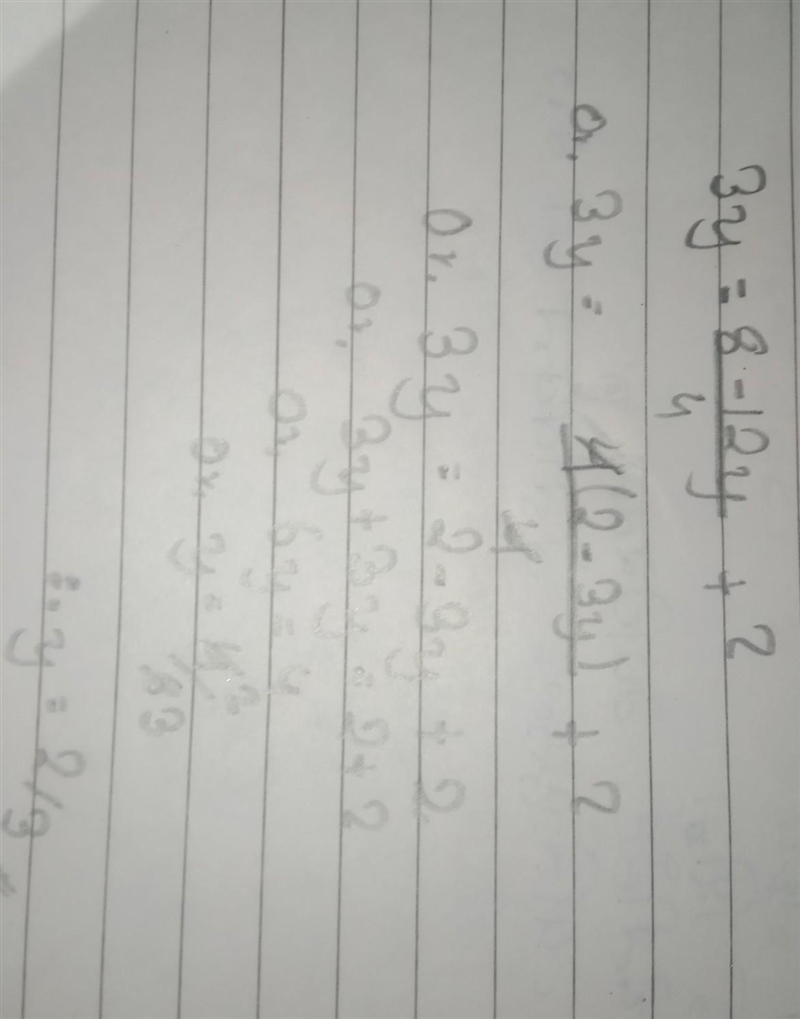 3y = 8 - 12y / 4 + 2
or, 3y = 4(2 - 3y) / 4 + 2
or, 3y = 2 - 3y + 2
or, 3y + 3y = 2 + 2
or, 6y = 4
or, y = 4 2 / 6 3
∴ y = 2/3